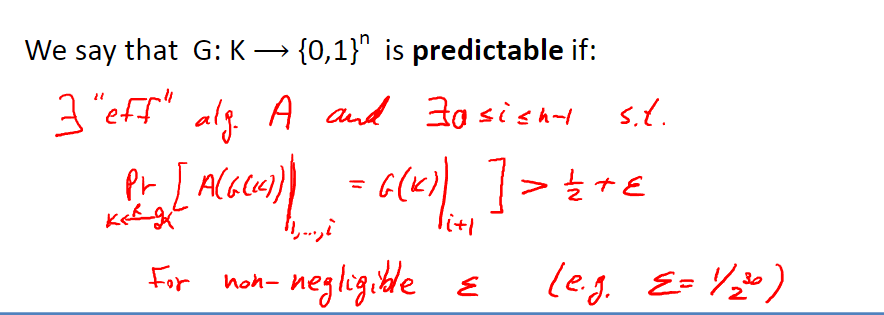 We say that G: K ⟶ {0,1}ⁿ is predictable if:
∃ "eff" alg. A and ∃ 0≤i≤n-1 s.t.
Pr [ A(G(K))| = G(K)| ] > 1/2 + ε
K ←R 𝒦 1,...,i i+1
For non-negligible ε (e.g. ε = 1/2³⁰)